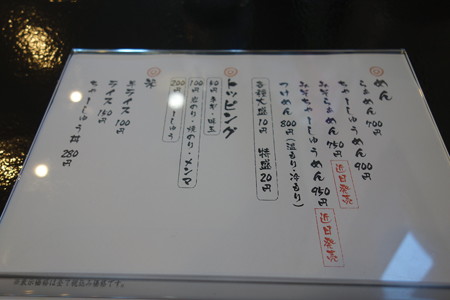 めん
らぁめん 700円
ちゃーしゅうめん 900円
めん 750円 近日発売
ちゃーしゅうめん 950円 近日発売
つけめん 800円(温もり・冷もり)
トッピング
50円
100円 のり・メンマ
200円 ちゃーしゅう
飯
半ライス 100円
ライス 150円
ちゃーしゅう丼 250円
※表示価格は全て税込み価格です。